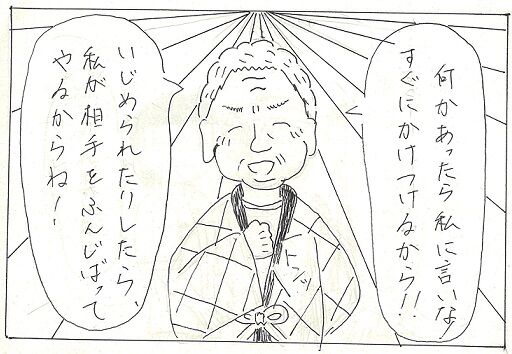 何かあったら私に言いな
すぐにかけつけるから!!
ドンッ
いじめられたりしたら、
私が相手をふんじばって
やるからね!